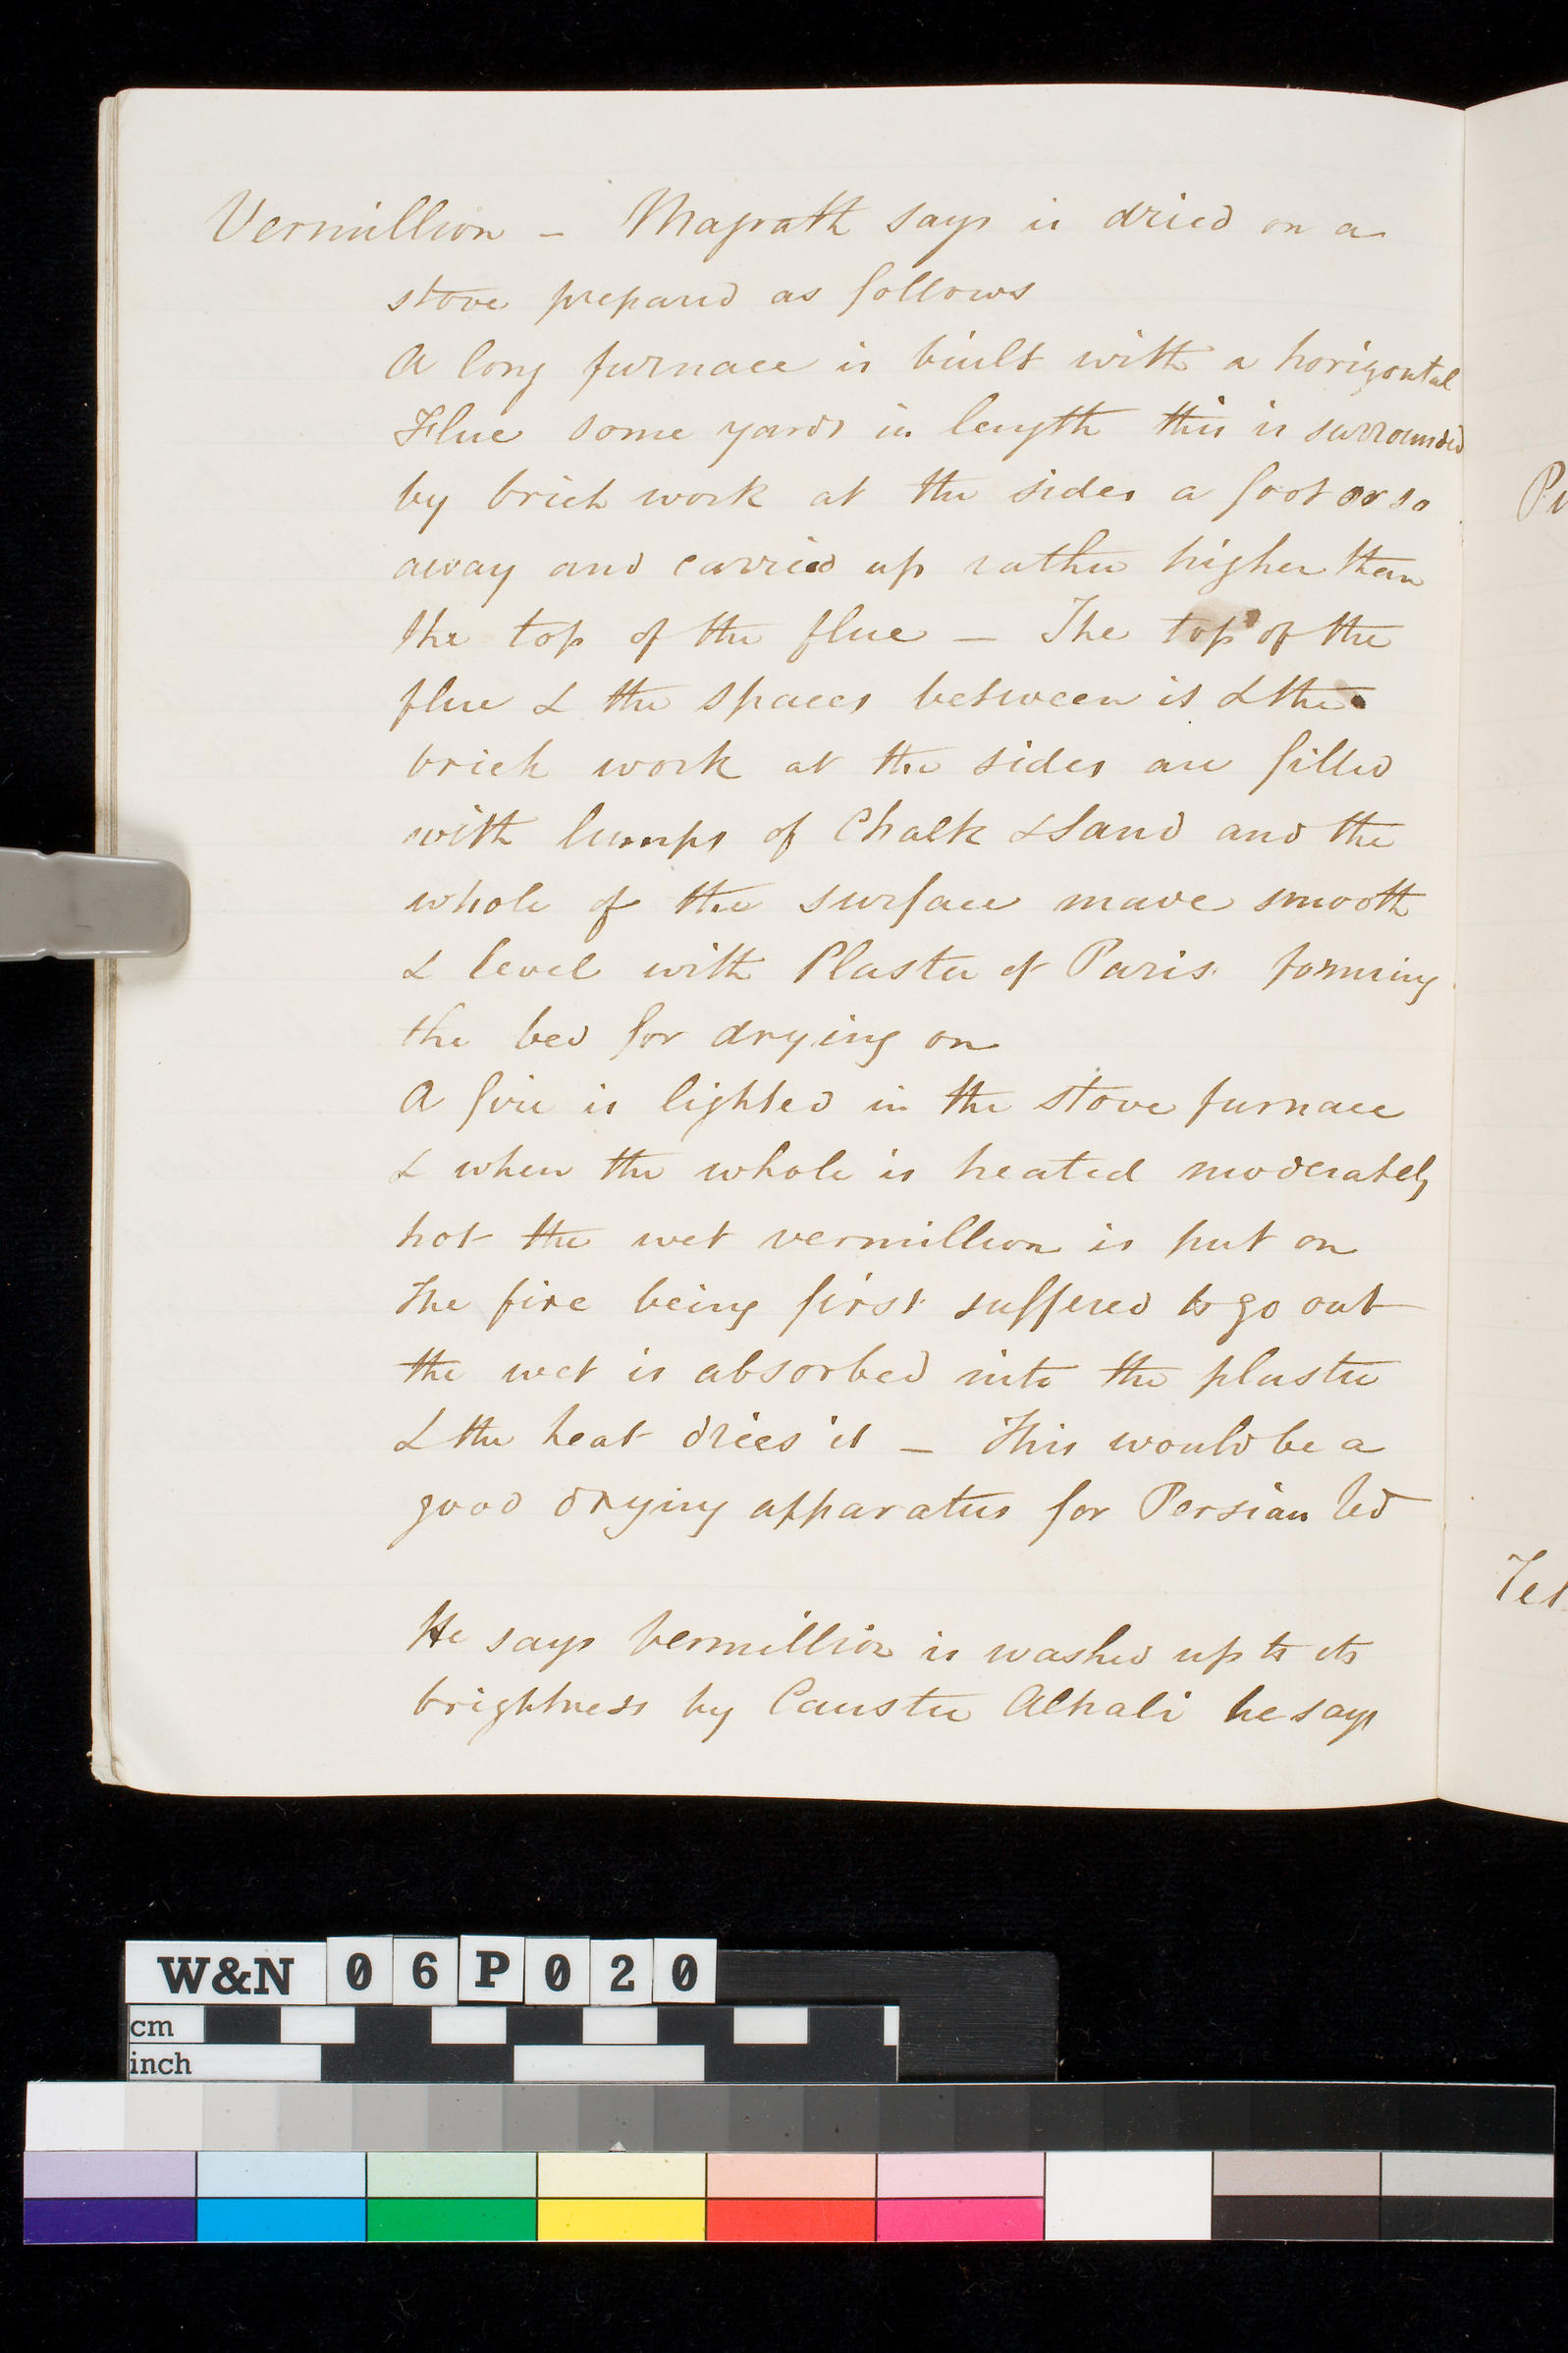 Vermillion – Magrath says is dried on a
stove prepared as follows
A long furnace is built with a horizontal
Flue some yards in length this is surrounded
by brick work at the sides a foot or so
away and carried up rather higher than
the top of the flue – The top of the
flue & the spaces between it & the
brick work at the sides are filled
with lumps of Chalk & Sand and the
whole of the surface made smooth
& level with Plaster of Paris forming
the bed for drying on
A fire is lighted in the stove furnace
& when the whole is heated moderately
hot the wet vermillion is put on
the fire being first suffered to go out
the wet is absorbed into the plaster
& the heat dries it – This would be a
good drying apparatus for Persian Red
He says Vermillion is washed up to its
brightness by Caustic Alkali he says
Te
W&N 06P020
cm
inch